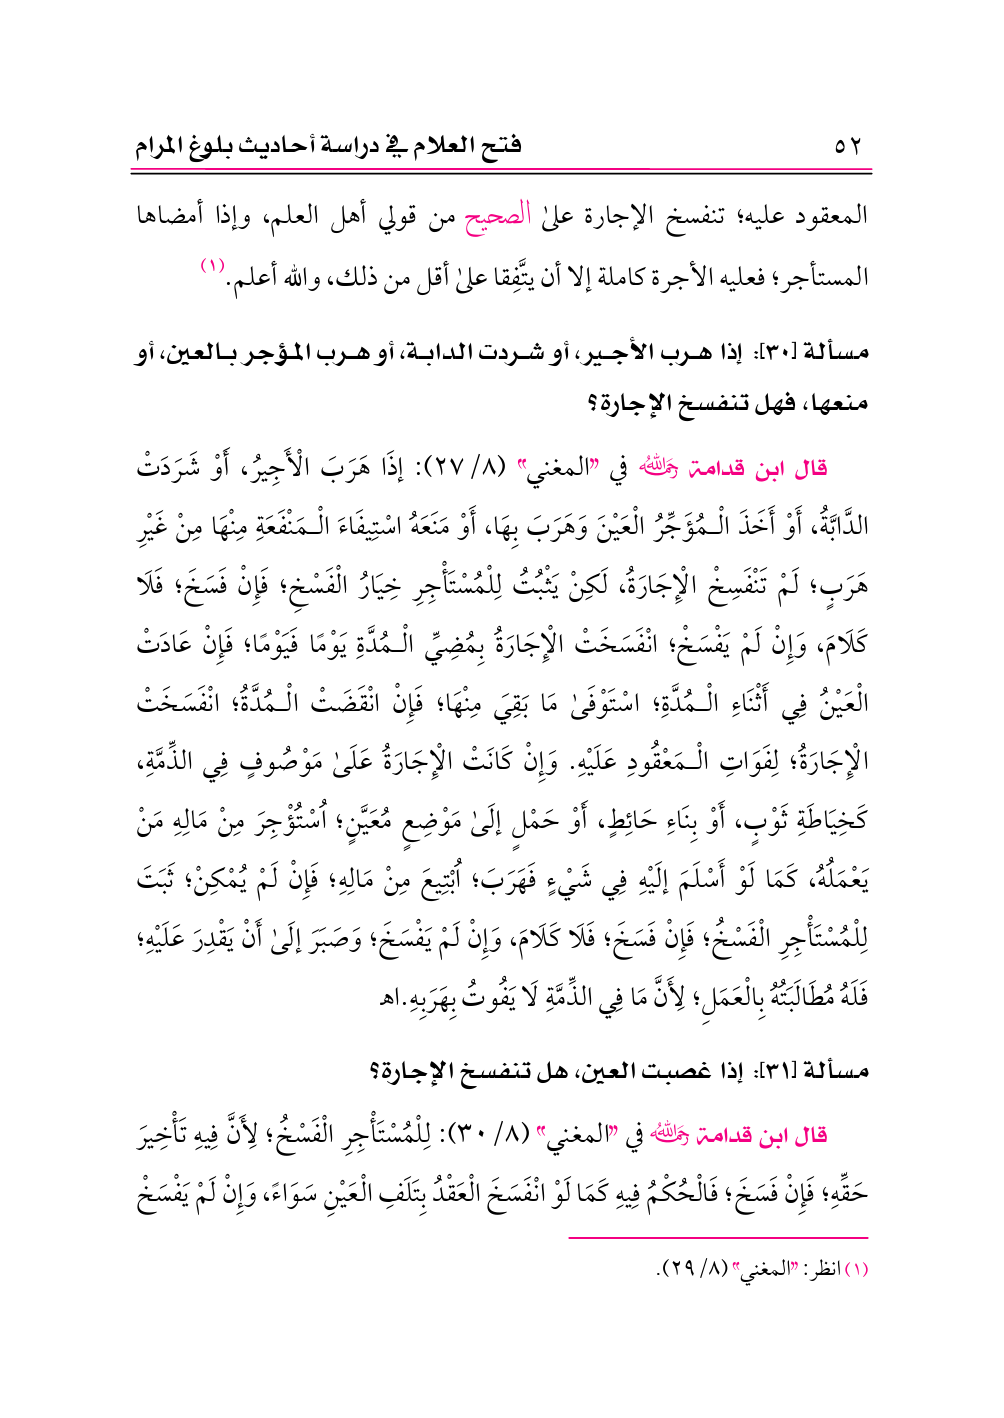 ٥٢ فتح العلام في دراسة أحاديث بلوغ المرام
المعقود عليه؛ تنفسخ الإجارة علىٰ الصحيح من قولي أهل العلم، وإذا أمضاها
المستأجر؛ فعليه الأجرة كاملة إلا أن يتَّفِقا علىٰ أقل من ذلك، والله أعلم.(١)
مسألة [٣٠]: إذا هـرب الأجـير، أو شـردت الدابـة، أو هـرب المـؤجر بـالعين، أو
منعها، فهل تنفسخ الإجارة؟
قال ابن قدامة رحمه الله في "المغني" (٨/ ٢٧): إِذَا هَرَبَ الْأَجِيرُ، أَوْ شَرَدَتْ
الدَّابَّةُ، أَوْ أَخَذَ الْـمُؤَجِّرُ الْعَيْنَ وَهَرَبَ بِهَا، أَوْ مَنَعَهُ اسْتِيفَاءَ الْـمَنْفَعَةِ مِنْهَا مِنْ غَيْرِ
هَرَبٍ؛ لَمْ تَنْفَسِخْ الْإِجَارَةُ، لَكِنْ يَثْبُتُ لِلْمُسْتَأْجِرِ خِيَارُ الْفَسْخِ؛ فَإِنْ فَسَخَ؛ فَلَا
كَلَامَ، وَإِنْ لَمْ يَفْسَخْ؛ انْفَسَخَتْ الْإِجَارَةُ بِمُضِيِّ الْـمُدَّةِ يَوْمًا فَيَوْمًا؛ فَإِنْ عَادَتْ
الْعَيْنُ فِي أَثْنَاءِ الْـمُدَّةِ؛ اسْتَوْفَىٰ مَا بَقِيَ مِنْهَا؛ فَإِنْ انْقَضَتْ الْـمُدَّةُ؛ انْفَسَخَتْ
الْإِجَارَةُ؛ لِفَوَاتِ الْـمَعْقُودِ عَلَيْهِ. وَإِنْ كَانَتْ الْإِجَارَةُ عَلَىٰ مَوْصُوفٍ فِي الذِّمَّةِ،
كَخِيَاطَةِ ثَوْبٍ، أَوْ بِنَاءِ حَائِطٍ، أَوْ حَمْلٍ إلَىٰ مَوْضِعٍ مُعَيَّنٍ؛ اُسْتُؤْجِرَ مِنْ مَالِهِ مَنْ
يَعْمَلُهُ، كَمَا لَوْ أَسْلَمَ إلَيْهِ فِي شَيْءٍ فَهَرَبَ؛ اُبْتِيعَ مِنْ مَالِهِ؛ فَإِنْ لَمْ يُمْكِنْ؛ ثَبَتَ
لِلْمُسْتَأْجِرِ الْفَسْخُ؛ فَإِنْ فَسَخَ؛ فَلَا كَلَامَ، وَإِنْ لَمْ يَفْسَخَ؛ وَصَبَرَ إلَىٰ أَنْ يَقْدِرَ عَلَيْهِ؛
فَلَهُ مُطَالَبَتُهُ بِالْعَمَلِ؛ لِأَنَّ مَا فِي الذِّمَّةِ لَا يَفُوتُ بِهَرَبِهِ.اهـ
مسألة [٣١]: إذا غصبت العين، هل تنفسخ الإجارة؟
قال ابن قدامة رحمه الله في "المغني" (٨/ ٣٠): لِلْمُسْتَأْجِرِ الْفَسْخُ؛ لِأَنَّ فِيهِ تَأْخِيرَ
حَقِّهِ؛ فَإِنْ فَسَخَ؛ فَالْحُكْمُ فِيهِ كَمَا لَوْ انْفَسَخَ الْعَقْدُ بِتَلَفِ الْعَيْنِ سَوَاءً، وَإِنْ لَمْ يَفْسَخْ
(١) انظر: "المغني" (٨/ ٢٩).